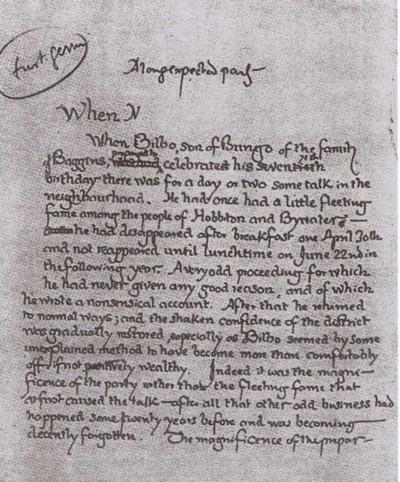 first germ
A long expected party
When N
When Bilbo, son of Bungo of the family
of Baggins, prepared to celebrated his seventieth
birthday there was for a day or two some talk in the
neighbourhood. He had once had a little fleeting
fame among the people of Hobbiton and Bywater –
he had disappeared after breakfast one April 30th
and not reappeared until lunchtime on June 22nd in
the following year. A very odd proceeding for which
he had never given any good reason, and of which
he wrote a nonsensical account. After that he returned
to normal ways; and the shaken confidence of the district
was gradually restored, especially as Bilbo seemed by some
unexplained method to have become more than comfortably
off, if not positively wealthy. Indeed it was the magni-
ficence of the party rather than the fleeting fame that
at first caused the talk – after all that other odd business had
happened some twenty years before and was becoming
decently forgotten. The magnificence of the